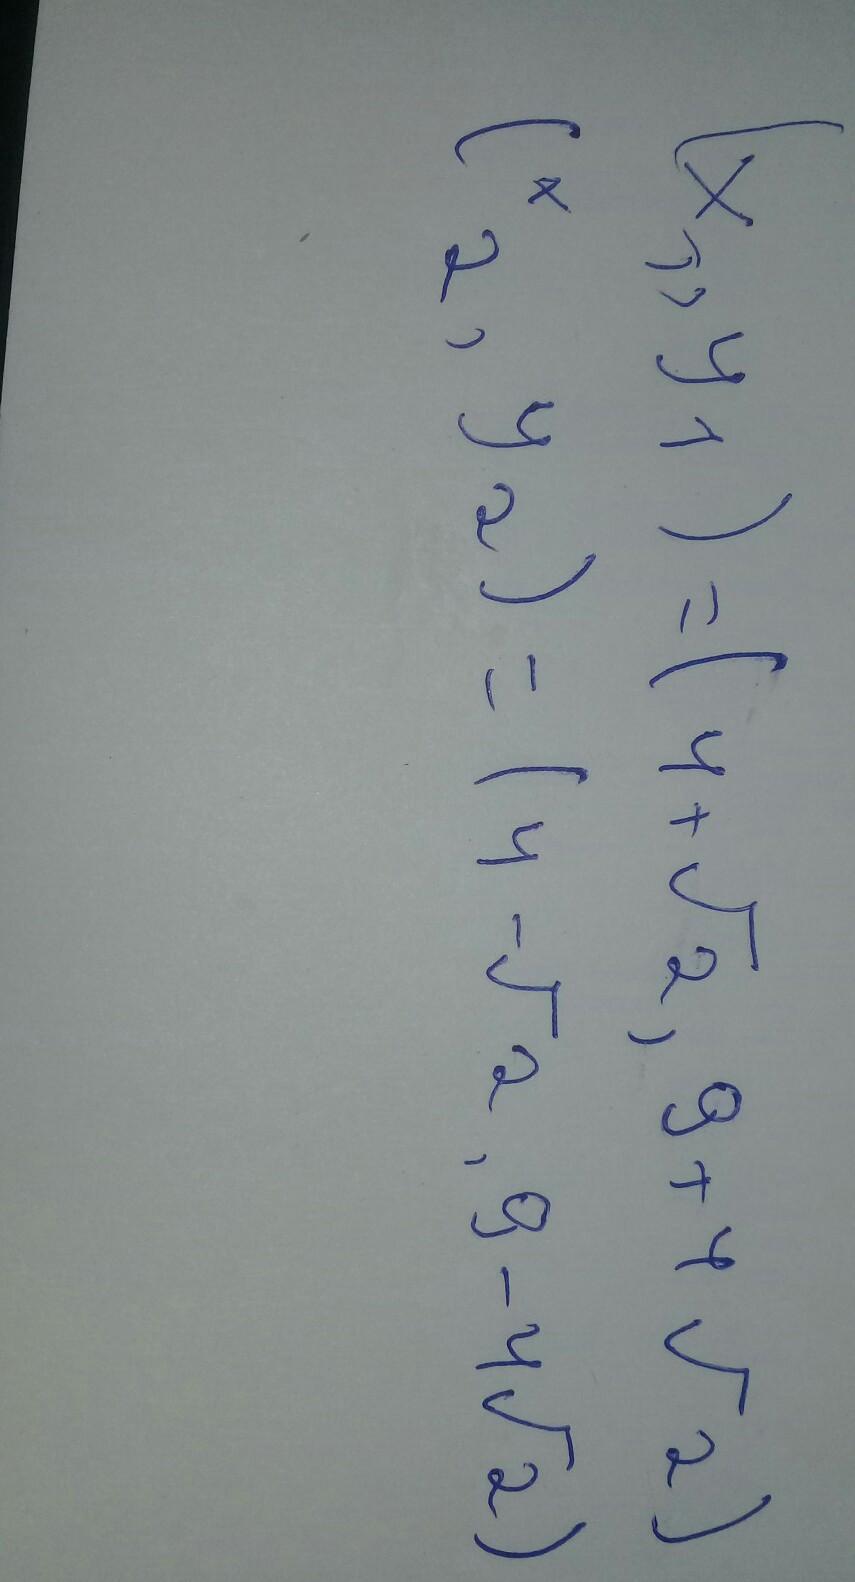 (x1, y1) = (4+√2, 9+4√2)
(x2, y2) = (4-√2, 9-4√2)